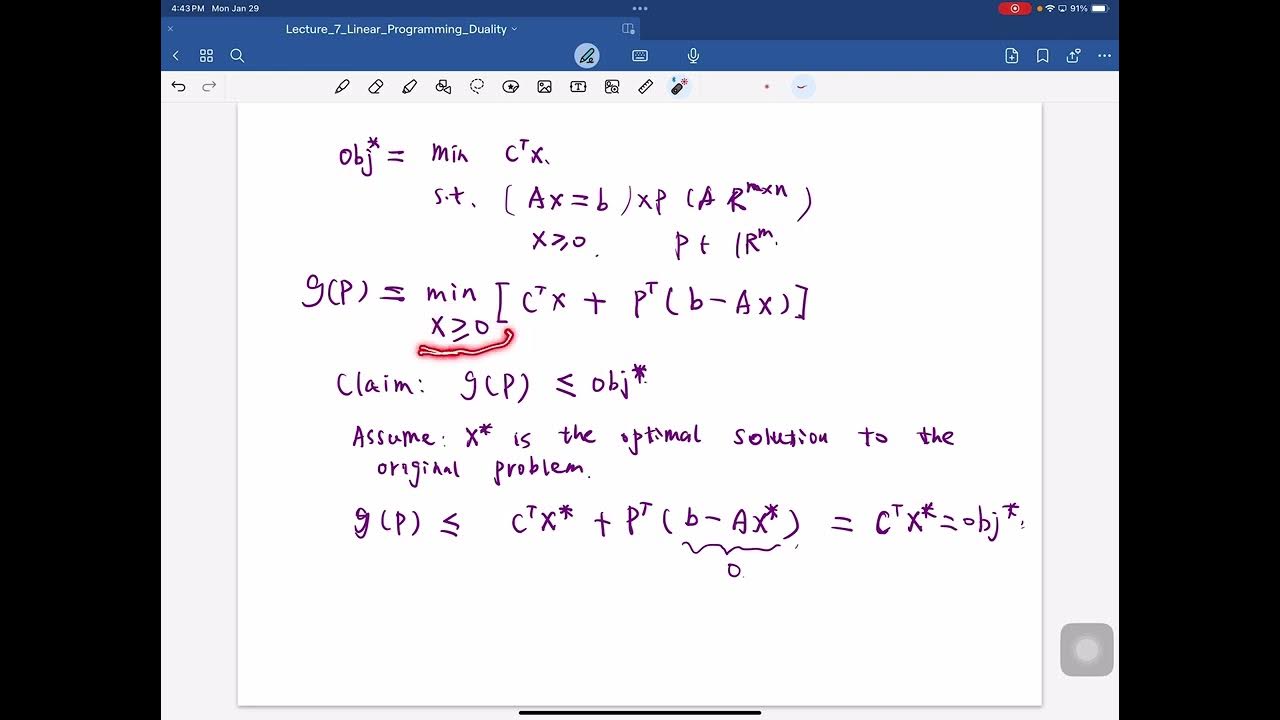 4:43 PM Mon Jan 29
91%
Lecture_7_Linear_Programming_Duality
obj* = min CᵀX.
s.t. (AX = b) x P (A R^{m×n})
X ≥ 0. P ∈ ℝ^m.
g(P) = min [CᵀX + Pᵀ(b - AX)]
X ≥ 0
Claim: g(P) ≤ obj*.
Assume: X* is the optimal solution to the
original problem.
g(P) ≤ CᵀX* + Pᵀ(b - AX*) = CᵀX* = obj*.
0.